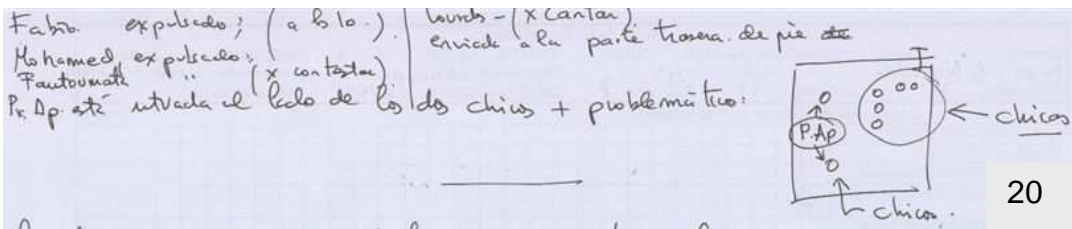 Fabio expulsado; (a 8 lo.).
Mohamed, expulsado;
Fautoumata " (x contestar)
Pr. Ap. está situada al lado de los dos chicos + problemáticos.
Lourdes - (x cantar)
enviada a la parte trasera. de pie
I
P. Ap
chicas
chicos.
20